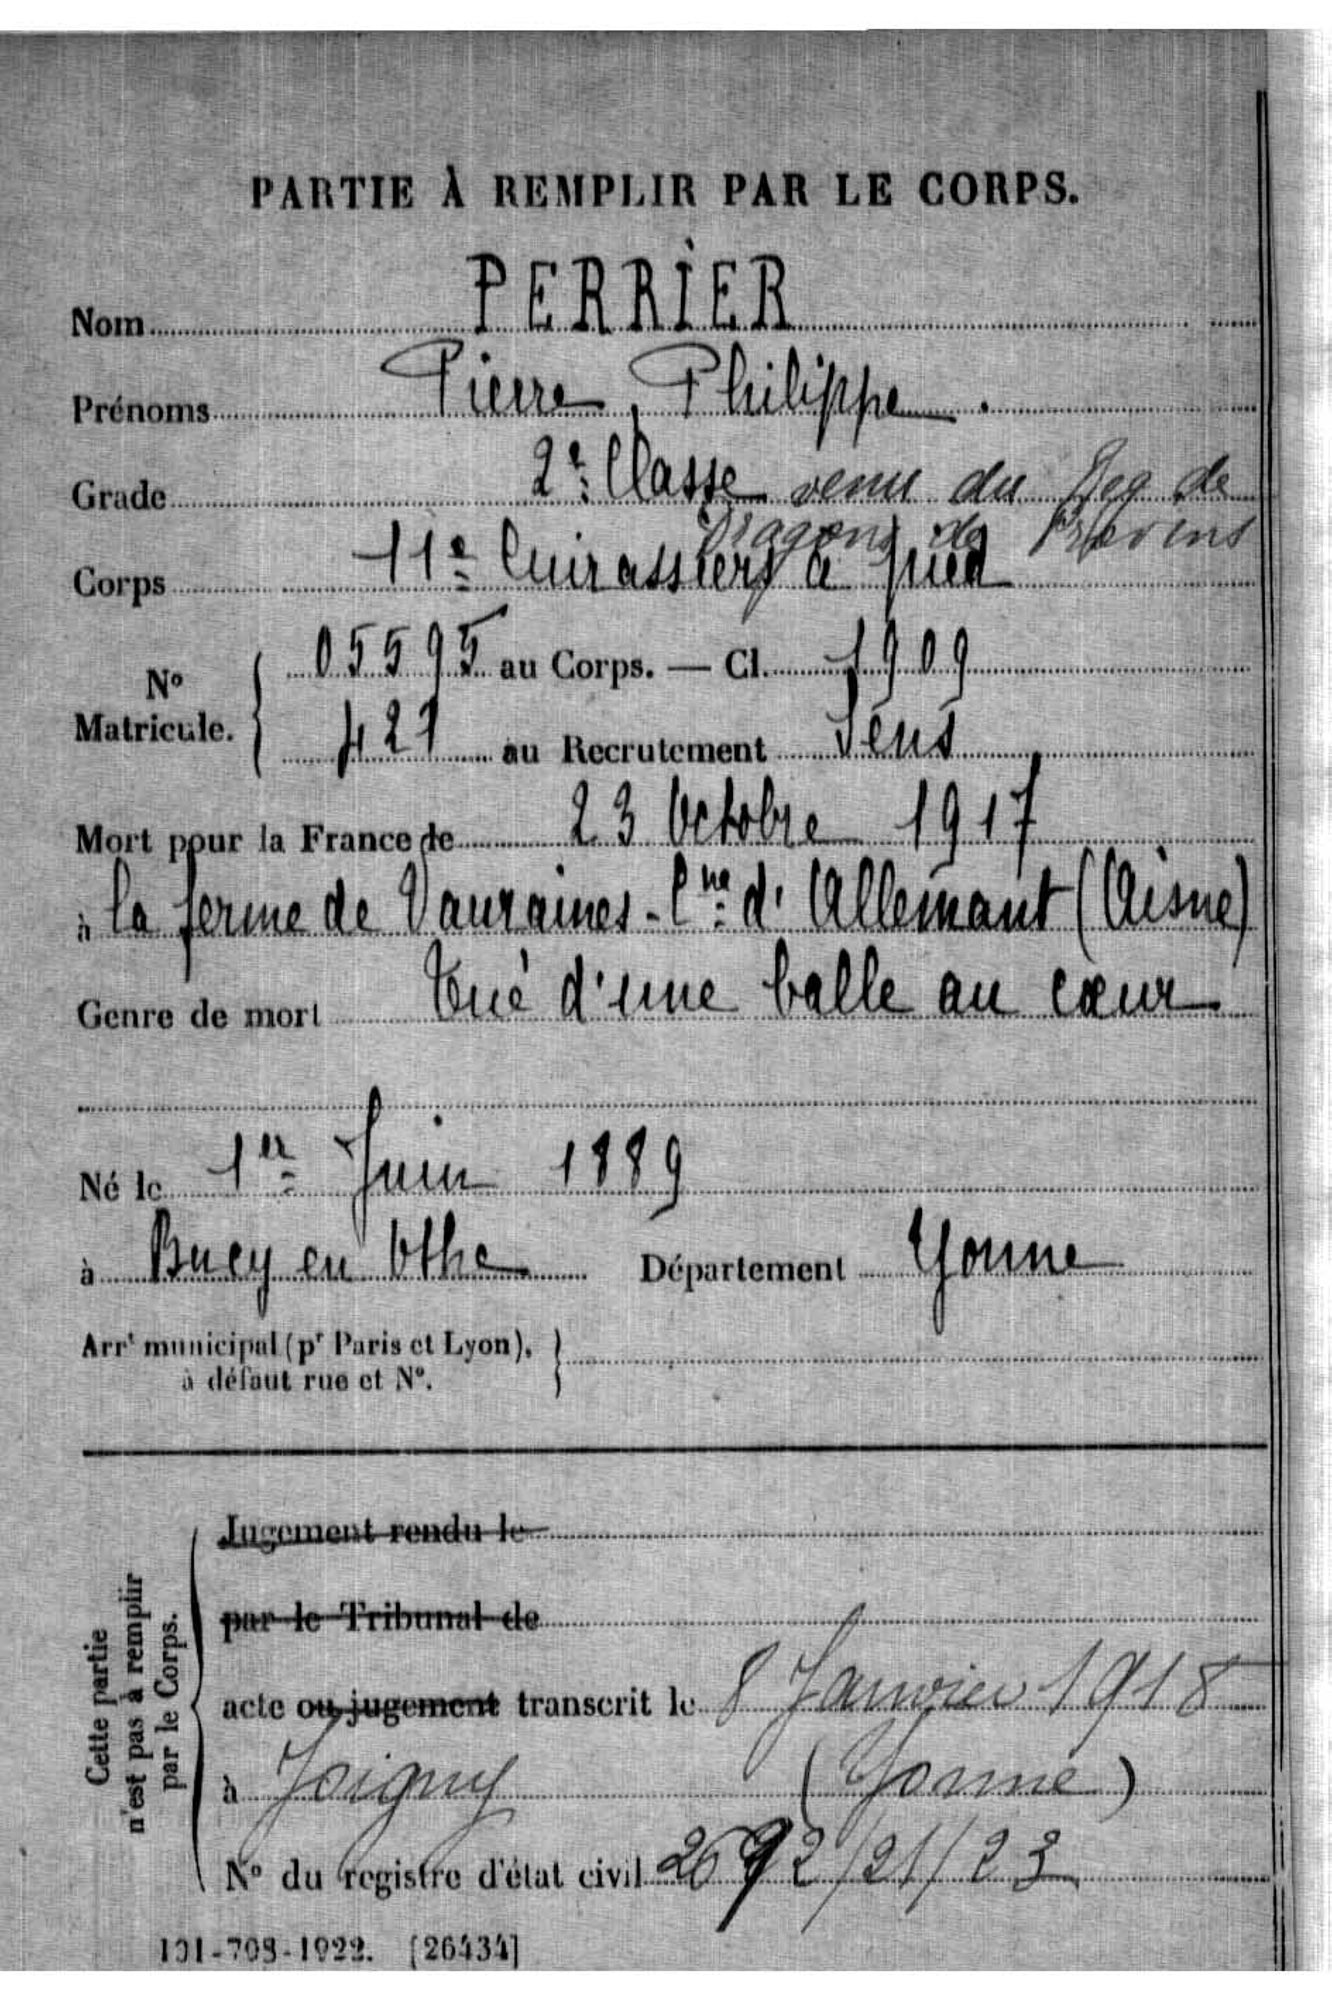 PARTIE À REMPLIR PAR LE CORPS.
Nom PERRIER
Prénoms Pierre, Philippe.
Grade 2e Classe venu du Reg de
Dragons de Provins
Corps 11e Cuirassiers à pied
No Matricule. 05595 au Corps. — Cl. 1909
421 au Recrutement Sens
Mort pour la France le 23 Octobre 1917
à la ferme de Vauraines - Cne d'Allemant (Aisne)
Genre de mort Tué d'une balle au cœur
Né le 1er Juin 1889
à Bucy en Othe Département Yonne
Arrt municipal (pr Paris et Lyon),
à défaut rue et No.
Cette partie
n'est pas à remplir
par le Corps.
Jugement rendu le
par le Tribunal de
acte ou jugement transcrit le 8 Janvier 1918
à Joigny (Yonne)
No du registre d'état civil 2692/21/23
101-708-1922. [26434]